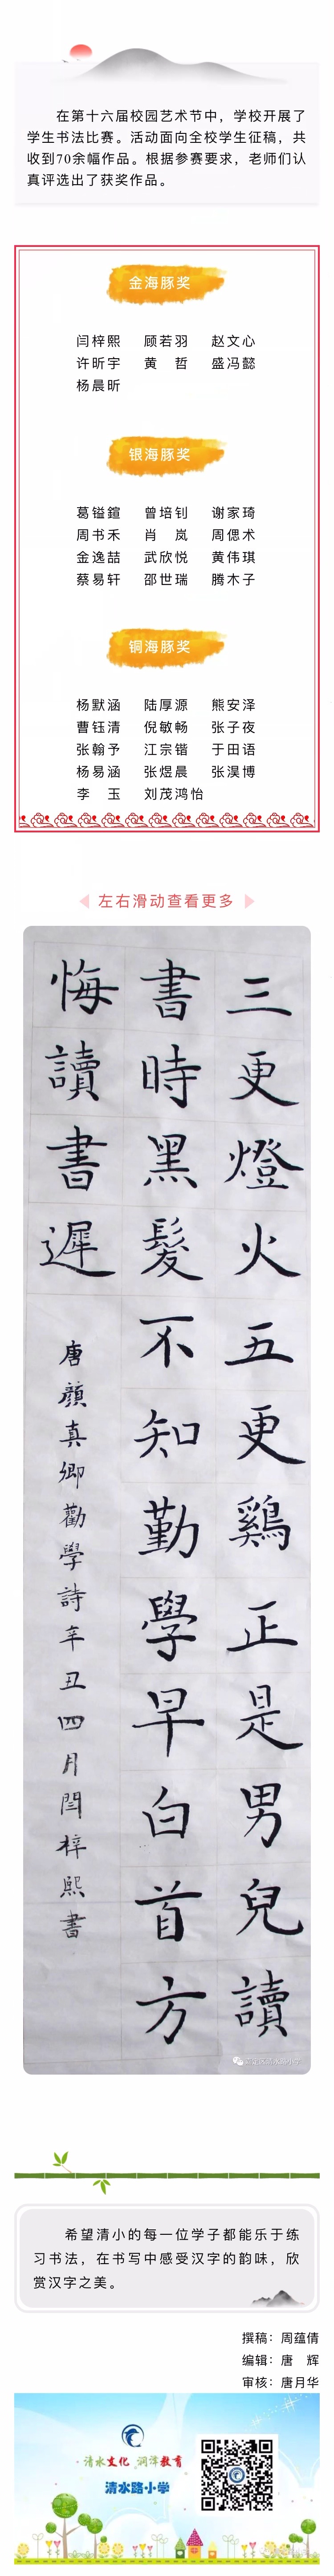 在第十六届校园艺术节中，学校开展了
学生书法比赛。活动面向全校学生征稿，共
收到70余幅作品。根据参赛要求，老师们认
真评选出了获奖作品。
金海豚奖
闫梓熙 顾若羽 赵文心
许昕宇 黄 哲 盛冯懿
杨晨昕
银海豚奖
葛镒鍹 曾培钊 谢家琦
周书禾 肖 岚 周偲术
金逸喆 武欣悦 黄伟琪
蔡易轩 邵世瑞 腾木子
铜海豚奖
杨默涵 陆厚源 熊安泽
曹钰清 倪敏畅 张子夜
张翰予 江宗锴 于田语
杨易涵 张煜晨 张淏博
李 玉 刘茂鸿怡
左右滑动查看更多
三更燈火五更鷄正是男兒讀
書時黑髮不知勤學早白首方
悔讀書遲
唐顔真卿勸學詩辛丑四月閆梓熙書
希望清小的每一位学子都能乐于练
习书法，在书写中感受汉字的韵味，欣
赏汉字之美。
撰稿：周蕴倩
编辑：唐 辉
审核：唐月华
清水文化 润泽教育
清水路小学